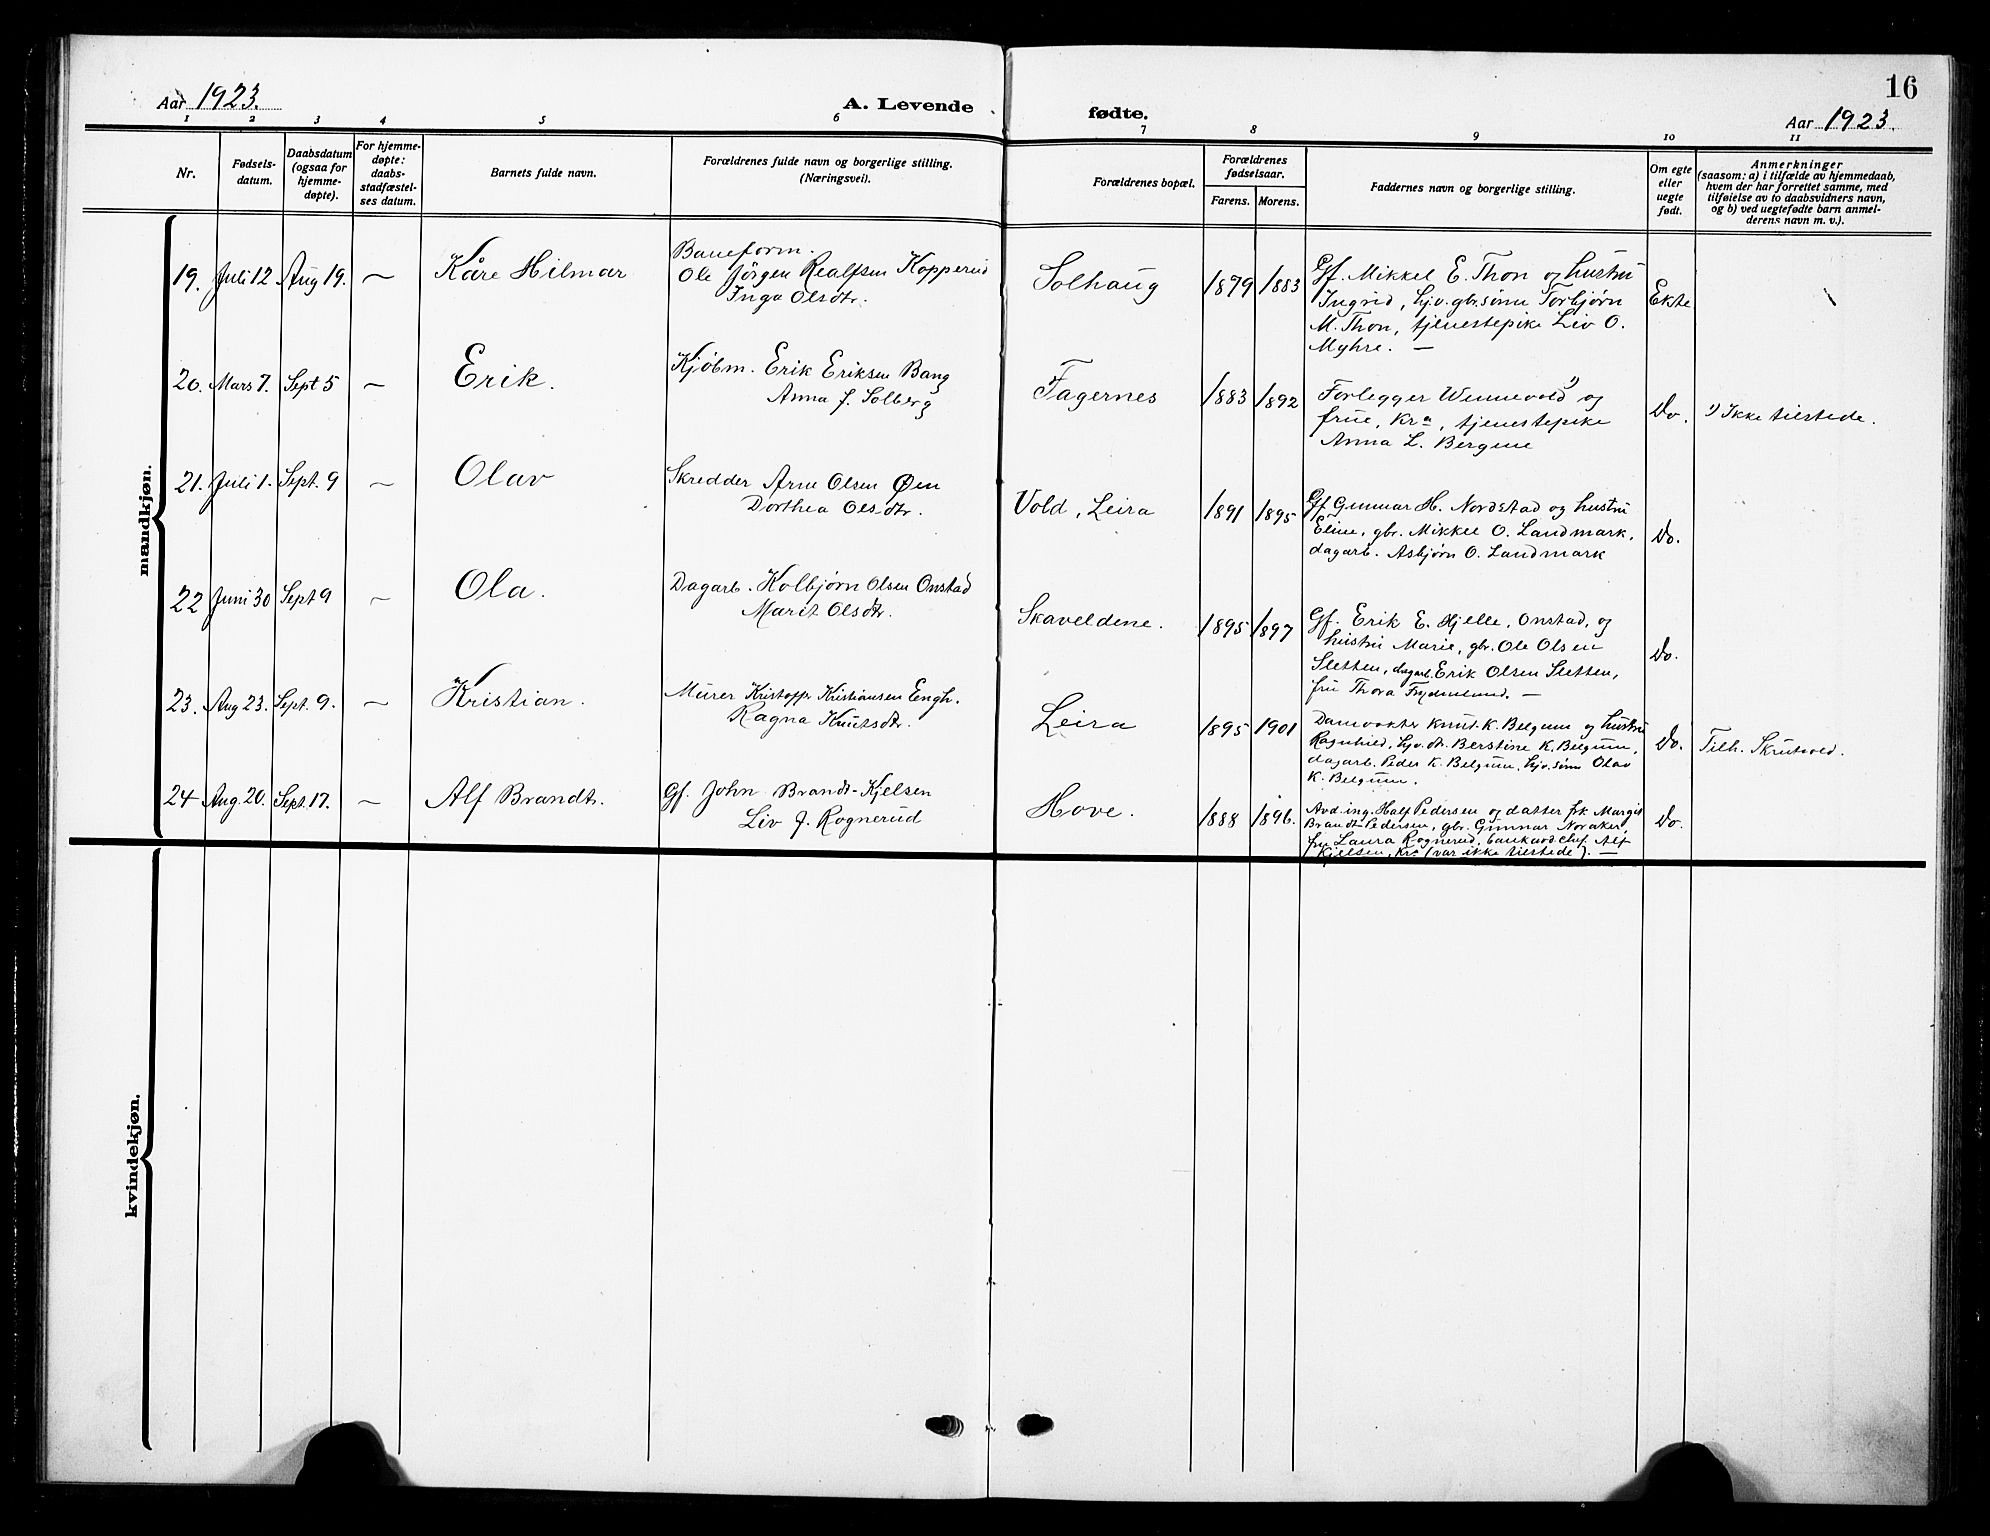 16
Aar 1923.
A. Levende
fødte.
Aar 1923.
1 2 3 4 5 6 7 8 9 10 11
Nr.
Fødsels-
datum.
Daabsdatum
(ogsaa for
hjemme-
døpte).
For hjemme-
døpte:
daabs-
stadfæstel-
ses datum.
Barnets fulde navn.
Forældrenes fulde navn og borgerlige stilling.
(Næringsvei).
Forældrenes bopæl.
Forældrenes
fødselsaar.
Farens. Morens.
Faddernes navn og borgerlige stilling.
Om egte
eller
uegte
født.
Anmerkninger
(saasom: a) i tilfælde av hjemmedaab,
hvem der har forrettet samme, med
tilføielse av to daabsvidners navn,
og b) ved uegtefødte barn anmel-
derens navn m. v.).
mandkjøn.
19. Juli 12 Aug 19. — Kåre Hilmar
Baneform.
Ole Jörgen Realfsen Kopperud
Inga Olsdtr.
Solhaug 1879 1883
Gf. Mikkel E. Thon og hustru
Ingrid, hj.v. gbr.sønn Torbjørn
M. Thon, tjenestepike Liv O.
Myhre. —
Ekte
20. Mars 7. Sept 5 — Erik.
Kjöbm. Erik Eriksen Bang
Anna J. Solberg
Fagernes 1883 1892
Forlegger Wennevold 1) og
frue, Kra, tjenestepike
Anna L. Bergene
Do. 1) Ikke tilstede.
21. Juli 1. Sept. 9 — Olav
Skredder Arne Olsen Øen
Dorthea Olsdtr.
Vold, Leira 1891 1895
Gf Gunnar H. Nordstad og hustru
Eline, gbr. Mikkel O. Landmark,
dagarb. Asbjørn O. Landmark
Do.
22 Juni 30 Sept 9 — Ola.
Dagarb. Kolbjørn Olsen Onstad
Marit Olsdtr.
Skaveldene. 1895 1897
Gf. Erik E. Hjelle, Onstad, og
hustru Marie, gbr. Ole Olsen
Sletten, dagarb. Erik Olsen Sletten,
fru Thora Frydenlund. —
Do.
23. Aug 23. Sept. 9. — Kristian.
Murer Kristoffr Kristiansen Engh.
Ragna Knutsdtr.
Leira 1895 1901
Damvokter Knut K. Belgum og hustru
Ragnhild, hjv. dt. Berstine K. Belgum,
dagarb. Peder K. Belgum, hjv. sønn Olav
K. Belgum.
Do. Tilh. Skrutvold.
24 Aug. 20. Sept. 17. — Alf Brandt.
Gf. John Brandt-Kjelsen
Liv J. Rognerud
Hove. 1888 1896.
Avd.ing. Half Pedersen og datter frk Margit
Brandt-Pedersen, gbr. Gunnar Noraker,
frk Laura Rognerud, bankavd.chef Alf
Kjelsen, Kra (var ikke tilstede). —
Do.
kvindekjøn.